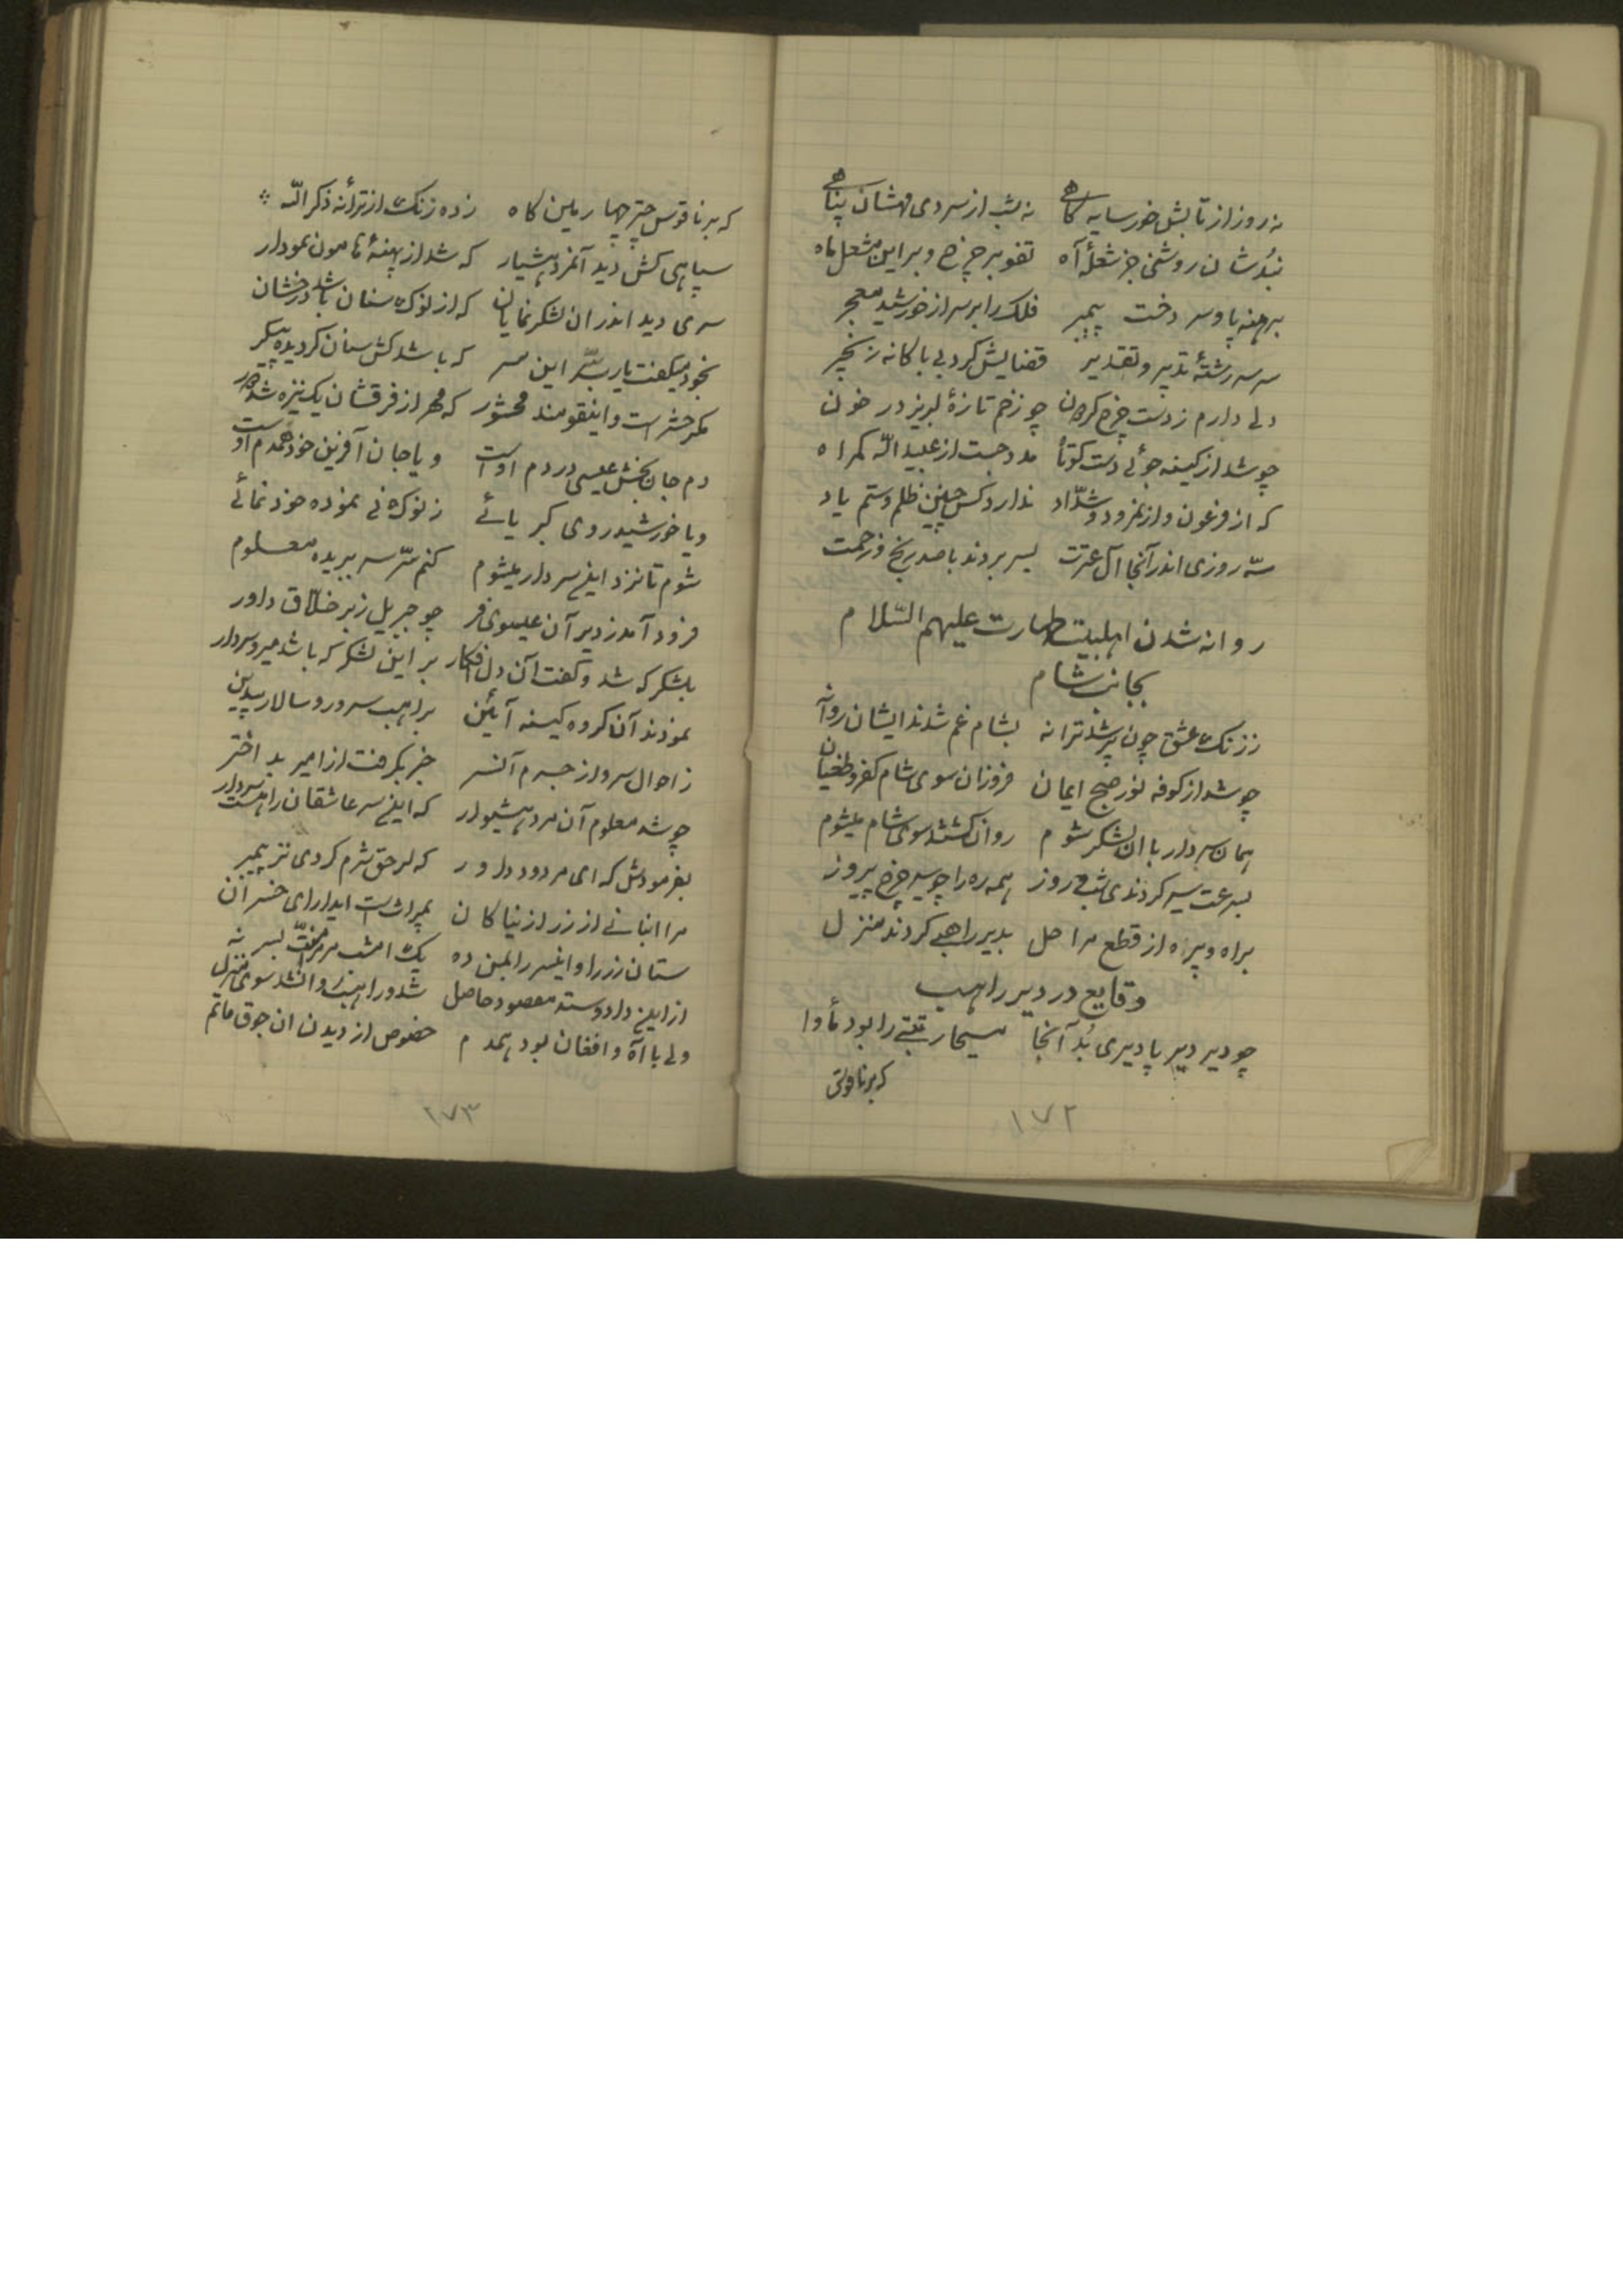 نه روز از تابش خور سایه گاهی نه شب از سردی مهشان پناهی
نبدشان روشنی جز شعلهٔ آه تفو بر چرخ و بر این مشعل ماه
برهنه پا و سر دخت پیمبر فلک را بر سر از خورشید معجر
سر سررشتهٔ تدبیر و تقدیر قضایش کرد بی باکانه زنجیر
دلی دارم ز دست چرخ گردون چو زخم تازهٔ لبریز در خون
چو شد از کینه جوئی دست کوتاه مدد جست از عبیدالله گمراه
که از فرعون و از نمرود و شدّاد ندارد کس چنین ظلم و ستم یاد
سه روزی اندر آنجا آل عترت بسر بردند با صد رنج و زحمت
روانه شدن اهلبیت طهارت علیهم السّلام
بجانب شام
ز زنک عشق چون پر شد ترانه بشام غم شدند ایشان روانه
چو شد از کوفه نور صبح ایمان فروزان سوی شام کفر و طغیان
همان سردار با ان لشکر شوم روان گشتند سوی شام میشوم
بسرعت سیر کردندی شب و روز همه ره را چو سیر چرخ پیروز
براه و بیره از قطع مراحل بدیر راهبی کردند منزل
وقایع در دیر راهب
چو دیر دیر پا دیری بُد آنجا مسیحا رتبتی را بود مأوا
که بر ناقوس
۱۷۲
که بر ناقوس چتر چهارمین کاه زده زنک از ترانه ذکر الله
سپاهی کش دید آنمرد هشیار که شد از پهنهٔ هامون نمودار
سری دید اندر ان لشکر نمایان که از نوک سنان باشد درخشان
بخود میکفت یا رب سرّ این سر که باشد کش سنان کردیده پیکر
مکر حشر است و اینقومند محشور که مهر از فرقشان یک نیزه شد دور
دم جان بخش عیسی در دم اوست و یا جان آفرین خود همدم اوست
و یا خورشید روی کبریائے ز نوک نی نموده خود نمائے
شوم تا نزد اینسردار میشوم کنم سرّ سر ببریده معلوم
فرود آمد ز دیر آن عیسوی فر چو جبریل زبر خلّاق داور
بلشکر که شد و کفت آن دل افکار بر این لشکر که باشد میر و سردار
نمودند آن کروه کینه آئین براهب سرور و سالار بیدین
ز احوال سر و از جرم آنسر خبر بکرفت از امیر بد اختر
چو شد معلوم آن مرد هشیوار که اینسر عاشقان را هست سردار
بفرمودش که ای مردود داور که از حق شرم کردی نز پیمبر
مرا انبانے از زر از نیاکان بمیراث است ایدار ای خسران
ستان زر را و اینسر را بمن ده یک امشب بر سر منّت بسر نه
از این داد و ستد مقصود حاصل شد و راهب روانشد سوی منزل
ولی با آه و افغان بود همدم خصوص از دیدن ان جوق ماتم
۱۷۳